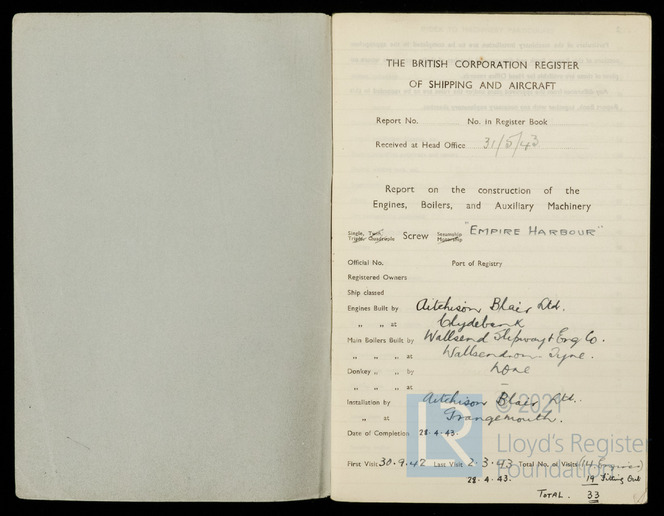 THE BRITISH CORPORATION REGISTER
OF SHIPPING AND AIRCRAFT
Report No. No. in Register Book
Received at Head Office 31/5/43
Report on the construction of the
Engines, Boilers, and Auxiliary Machinery
Single, Twin, Triple, Quadruple Screw Steamship Motorship "EMPIRE HARBOUR"
Official No. Port of Registry
Registered Owners
Ship classed
Engines Built by Aitchison Blair Ltd.
" " at Clydebank
Main Boilers Built by Wallsend Slipway & Eng Co.
" " " at Wallsend on Tyne.
Donkey " " by None
" " " at —
Installation by Aitchison Blair Ltd.
" at Grangemouth.
Date of Completion 28.4.43.
First Visit 30.9.42 Last Visit 2.3.43 Total No. of Visits (14 Engines)
28.4.43. 19 Fitting Out
TOTAL. 33
LR © 2021
Lloyd's Register
Foundation